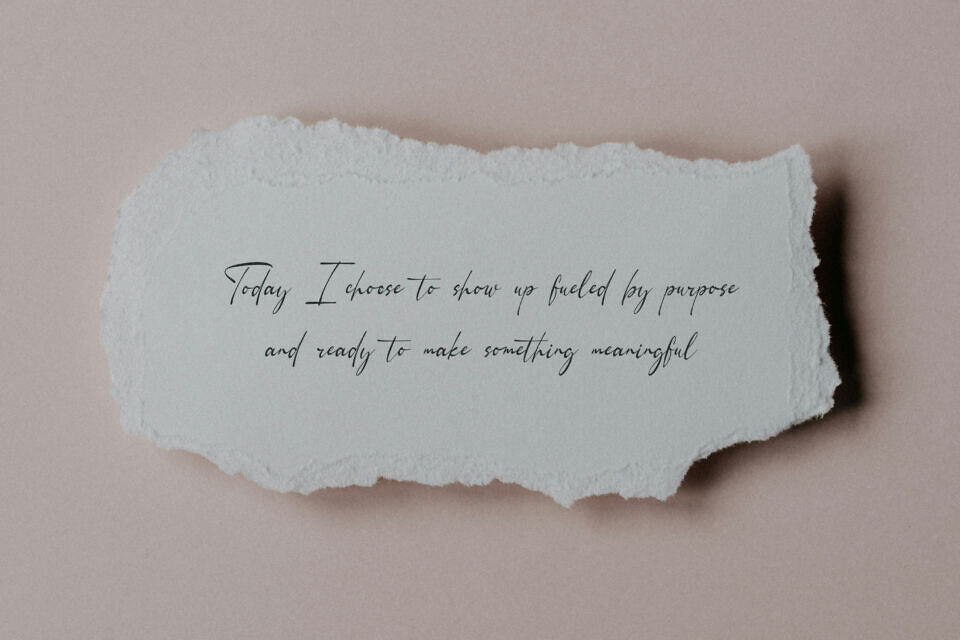 Today I choose to show up fueled by purpose
and ready to make something meaningful